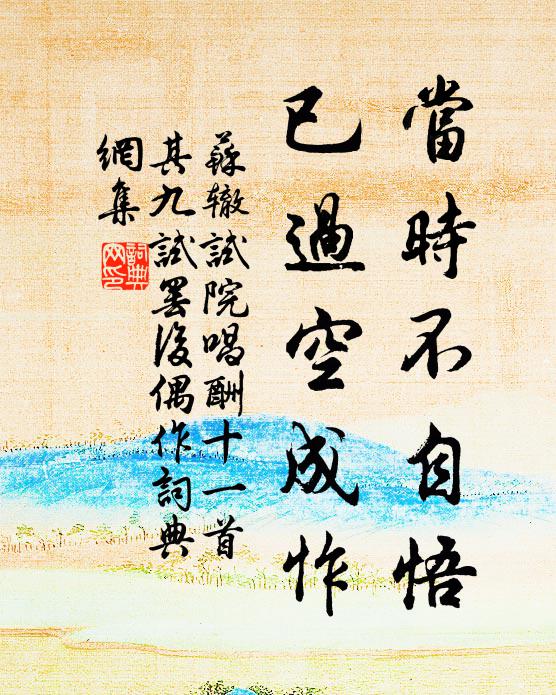 當時不自悟
已過空成怍
蘇轍試院唱酬十一首
其九試罢後偶作詞典
網集
詞典網印